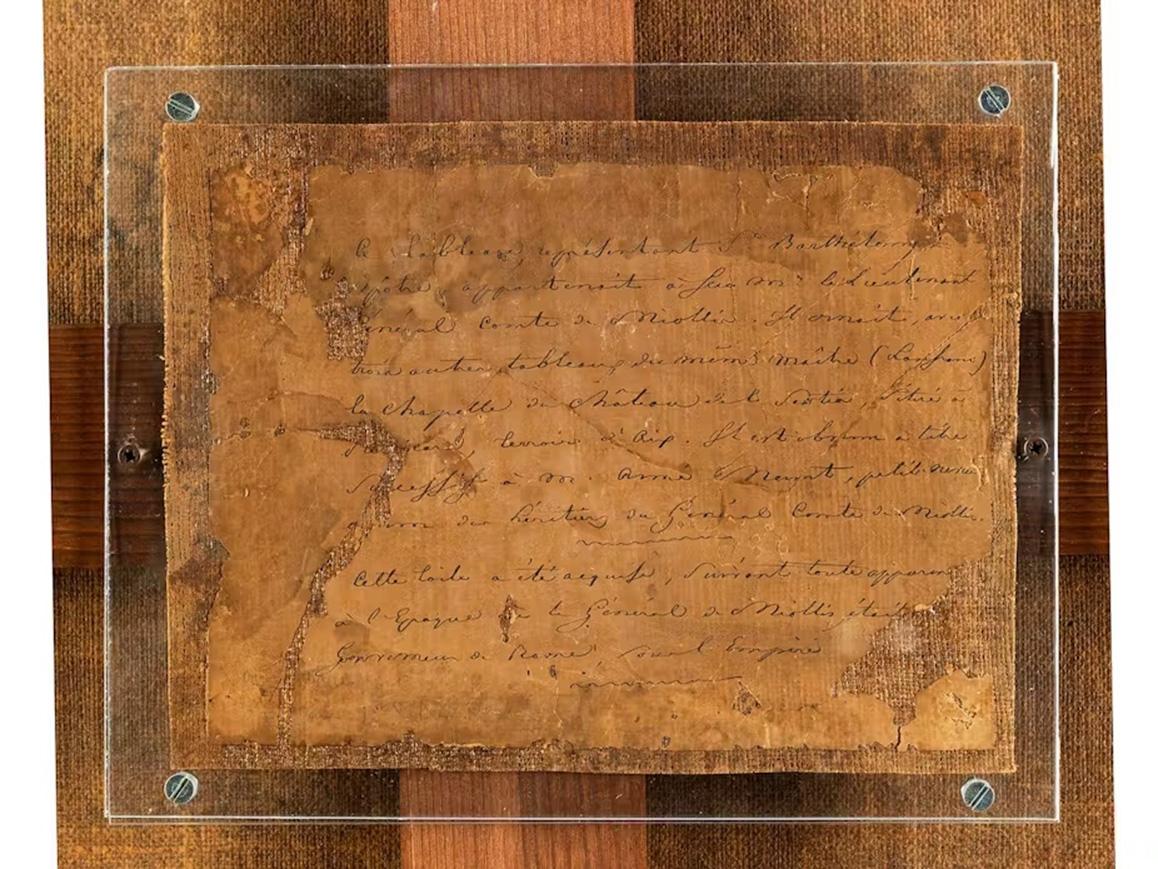 Ce Tableau, représentant St Barthélemy
Apôtre, appartenait à feu Mr le Lieutenant
Général Comte de Miollis. Il ornait, avec
trois autres tableaux du même maître (Lanfranc)
la chapelle du château de la
terroir d'Aix. Il est obtenu à titre
successif à M. petit neveu
des héritiers du Général Comte de Miollis.
Cette toile a été acquise, suivant toute apparence
à l'Epoque où le Général de Miollis était
Gouverneur de Rome, sous l'Empire